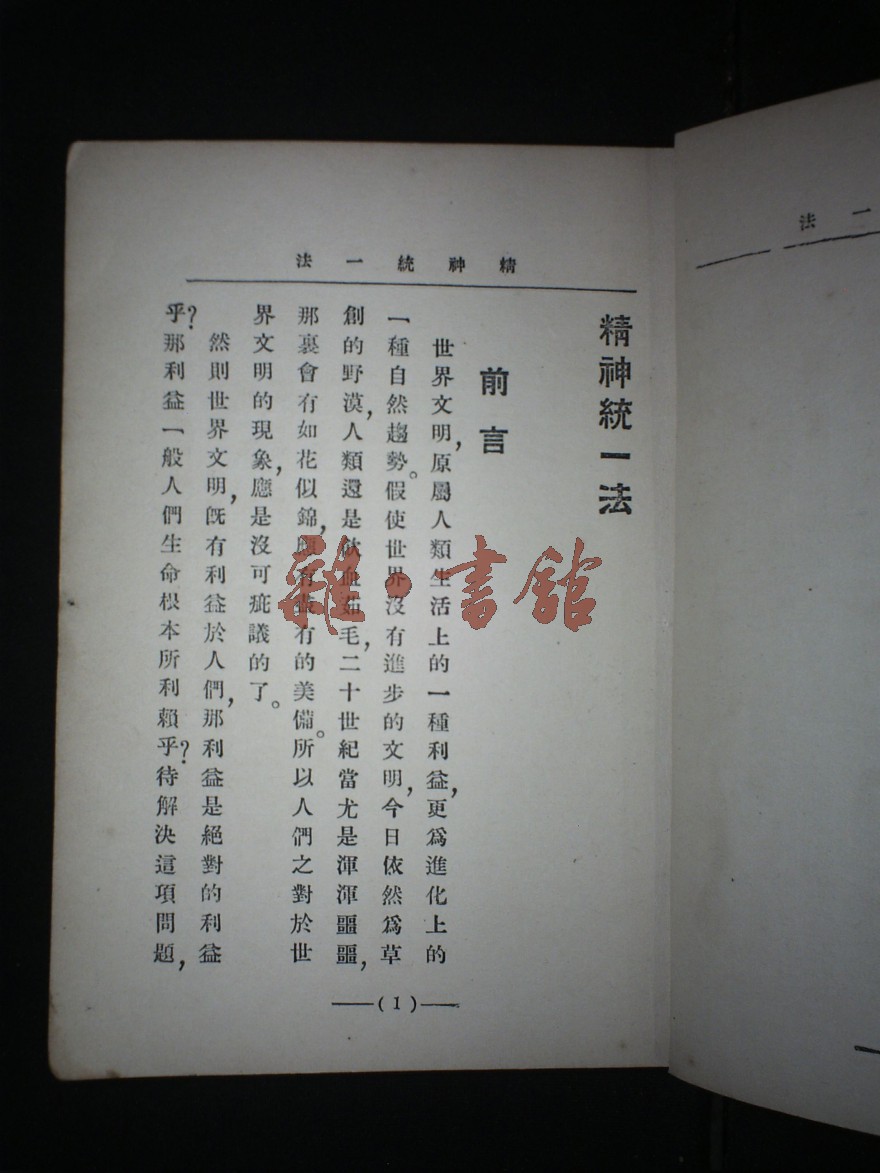 精神統一法
精神統一法
前言
世界文明,原屬人類生活上的一種利益,更爲進化上的
一種自然趨勢。假使世界沒有進步的文明,今日依然爲草
創的野漠,人類還是飲血茹毛,二十世紀當尤是渾渾噩噩,
那裏會有如花似錦,有的美備。所以人們之對於世
界文明的現象,應是沒可疵議的了。
然則世界文明,旣有利益於人們,那利益是絕對的利益
乎?那利益一般人們生命根本所利賴乎?待解決這項問題,
(1)
一法
雜·書館